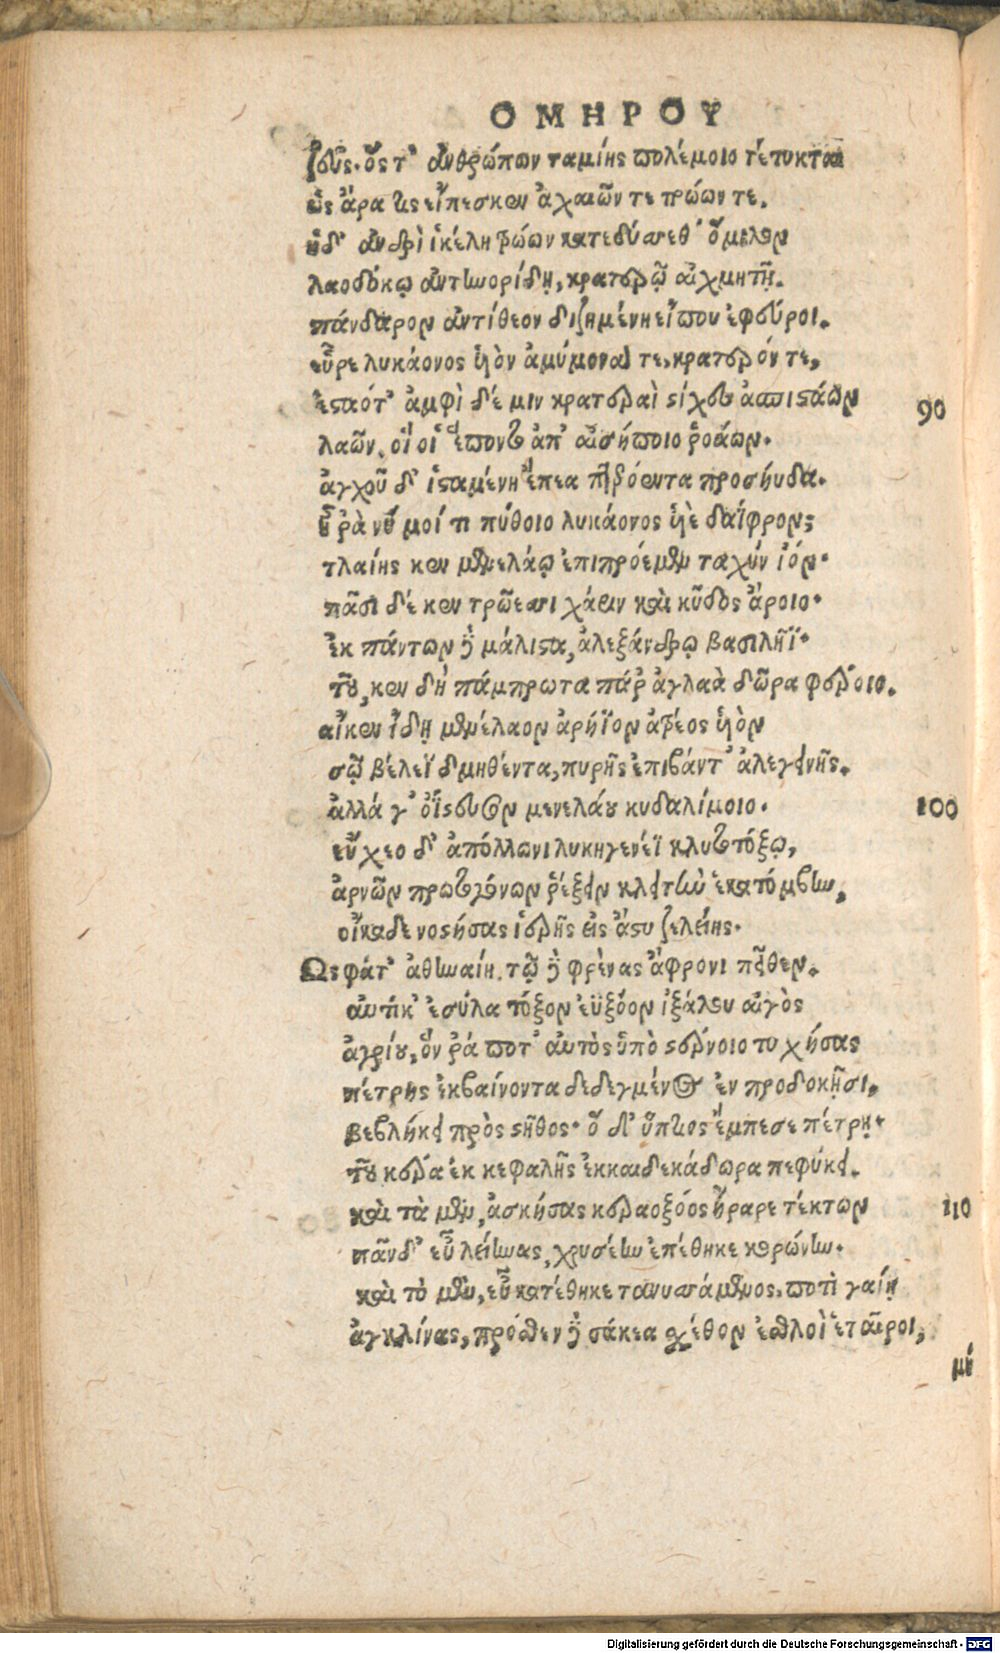 ΟΜΗΡΟΥ
ζεύς. ὅς τ' ἀνθρώπων ταμίης πολέμοιο τέτυκται
ὣς ἄρα τις εἴπεσκεν ἀχαιῶν τε τρώων τε.
ἡ δ' ἀνδρὶ ἰκέλη τρώων κατεδύσεθ' ὅμιλον
λαοδόκῳ ἀντηνορίδῃ, κρατερῷ αἰχμητῇ.
πάνδαρον ἀντίθεον διζημένη εἴπου ἐφεύροι.
εὗρε λυκάονος ὑὸν ἀμύμονα τε, κρατερόν τε,
ἑσταότ' ἀμφὶ δέ μιν κρατεραὶ στίχες ἀσπιστάων
90
λαῶν, οἵ οἱ ἕποντο ἀπ' αἰσήποιο ῥοάων.
ἀγχοῦ δ' ἱσταμένη ἔπεα πτερόεντα προσηύδα.
ἦ ῥὰ νύ μοί τι πύθοιο λυκάονος ὑὲ δαΐφρον;
τλαίης κεν μενελάῳ ἐπιπρόεμεν ταχὺν ἰόν.
πᾶσι δέ κεν τρώεσσι χάριν καὶ κῦδος ἄροιο.
ἐκ πάντων δὲ μάλιστα, ἀλεξάνδρῳ βασιλῆϊ.
τοῦ, κεν δὴ πάμπρωτα πάρ' ἀγλαὰ δῶρα φέροιο.
αἴκεν ἴδῃ μενέλαον ἀρήϊον ἀτρέος ὑὸν
σῷ βέλεϊ δμηθέντα, πυρῆς ἐπιβάντ' ἀλεγεινῆς.
ἀλλά γ' ὀΐστευσον μενελάου κυδαλίμοιο.
100
εὔχεο δ' ἀπόλλωνι λυκηγενέϊ κλυτοτόξῳ,
ἀρνῶν πρωτογόνων ῥέξειν κλειτὴν ἑκατόμβην,
οἴκαδε νοστήσας ἱερῆς εἰς ἄστυ ζελείης.
Ως φάτ' ἀθηναίη. τῷ δὲ φρένας ἄφρονι πεῖθεν.
αὐτίκ' ἐσύλα τόξον ἐΰξοον ἰξάλου αἰγὸς
ἀγρίου, ὅν ῥά ποτ' αὐτὸς ὑπὸ στέρνοιο τυχήσας
πέτρης ἐκβαίνοντα δεδεγμένος ἐν προδοκῇσι.
βεβλήκει πρὸς στῆθος. ὅ δ' ὕπτιος ἔμπεσε πέτρῃ.
τοῦ κέρα ἐκ κεφαλῆς ἐκκαιδεκάδωρα πεφύκει.
καὶ τὰ μὲν, ἀσκήσας κεραοξόος ἤραρε τέκτων
110
πᾶν δ' εὖ λειήνας, χρυσέην ἐπέθηκε κορώνην.
καὶ τὸ μὲν, εὖ κατέθηκε τανυσσάμενος, ποτὶ γαίῃ
ἀγκλίνας, πρόσθεν δὲ σάκεα σχέθον ἐσθλοὶ ἑταῖροι,
μὴ
Digitalisierung gefördert durch die Deutsche Forschungsgemeinschaft - DFG